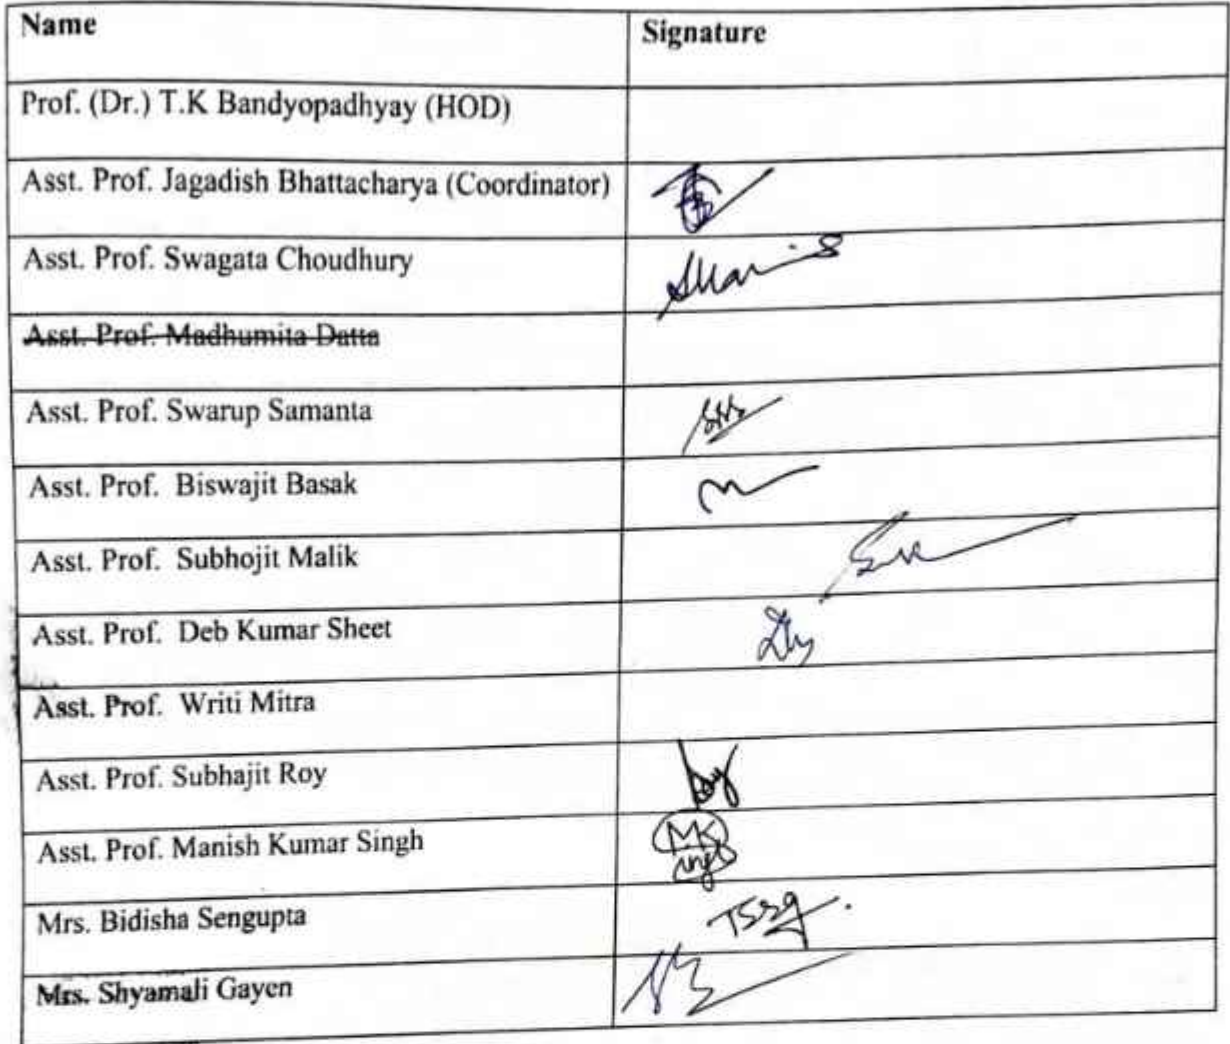 Name Signature
Prof. (Dr.) T.K Bandyopadhyay (HOD)
Asst. Prof. Jagadish Bhattacharya (Coordinator)
Asst. Prof. Swagata Choudhury
Asst. Prof. Madhumita Datta
Asst. Prof. Swarup Samanta
Asst. Prof. Biswajit Basak
Asst. Prof. Subhojit Malik
Asst. Prof. Deb Kumar Sheet
Asst. Prof. Writi Mitra
Asst. Prof. Subhajit Roy
Asst. Prof. Manish Kumar Singh
Mrs. Bidisha Sengupta
Mrs. Shyamali Gayen